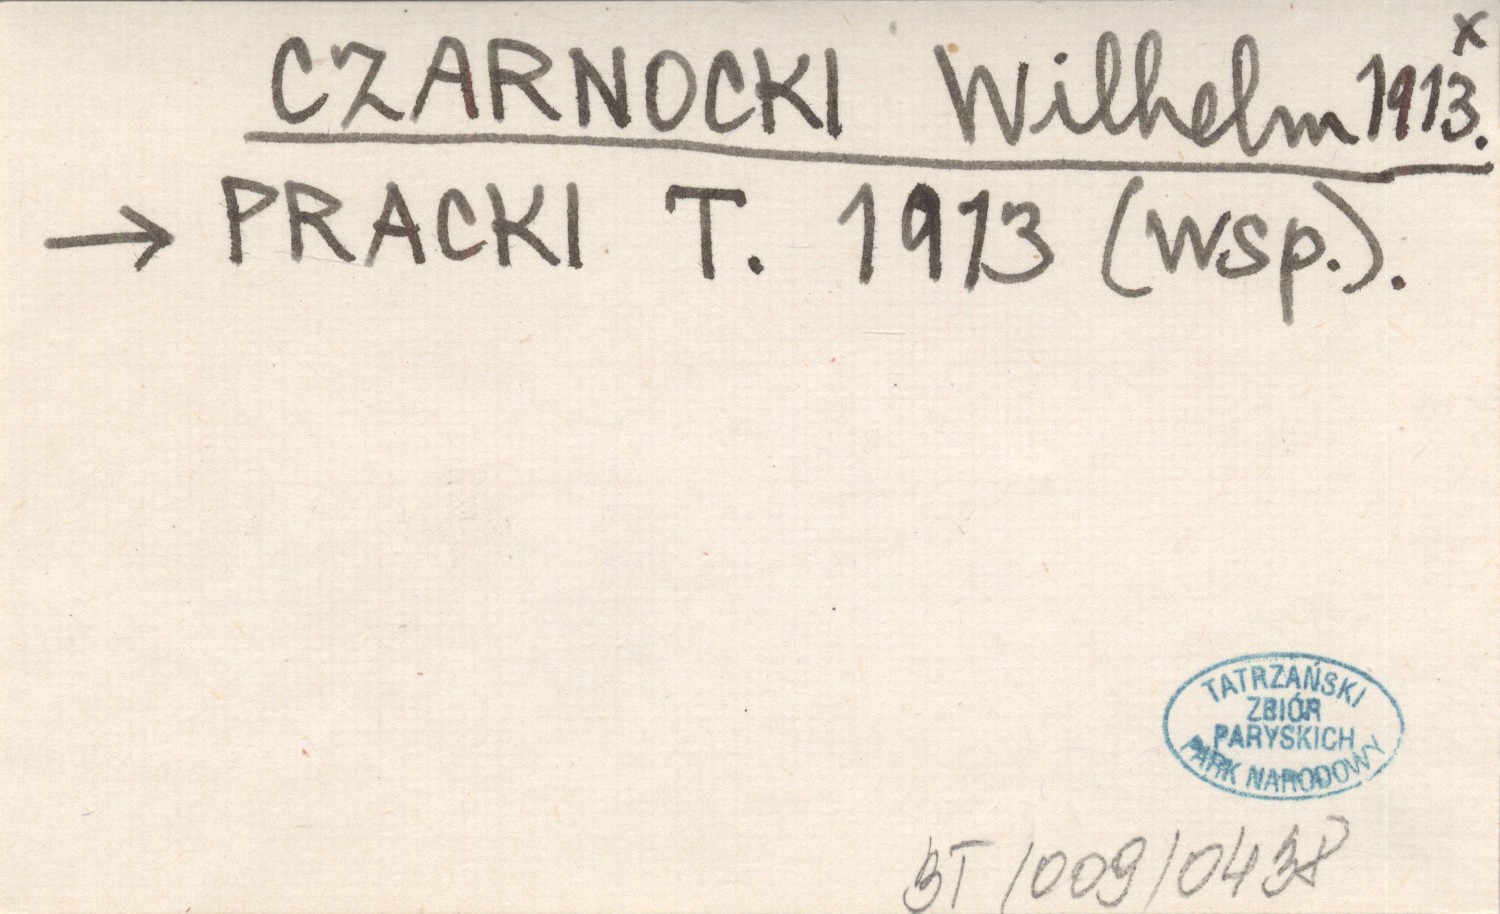 CZARNOCKI Wilhelm 1913.x
→ PRACKI T. 1913 (wsp.).
TATRZAŃSKI
ZBIÓR
PARYSKICH
PARK NARODOWY
BT/009/0438